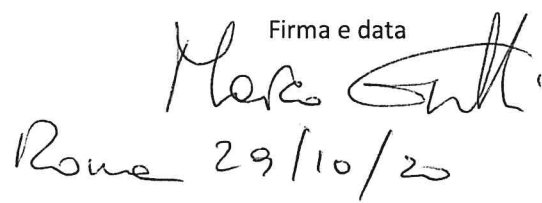 Firma e data
Marco
Roma 29/10/20